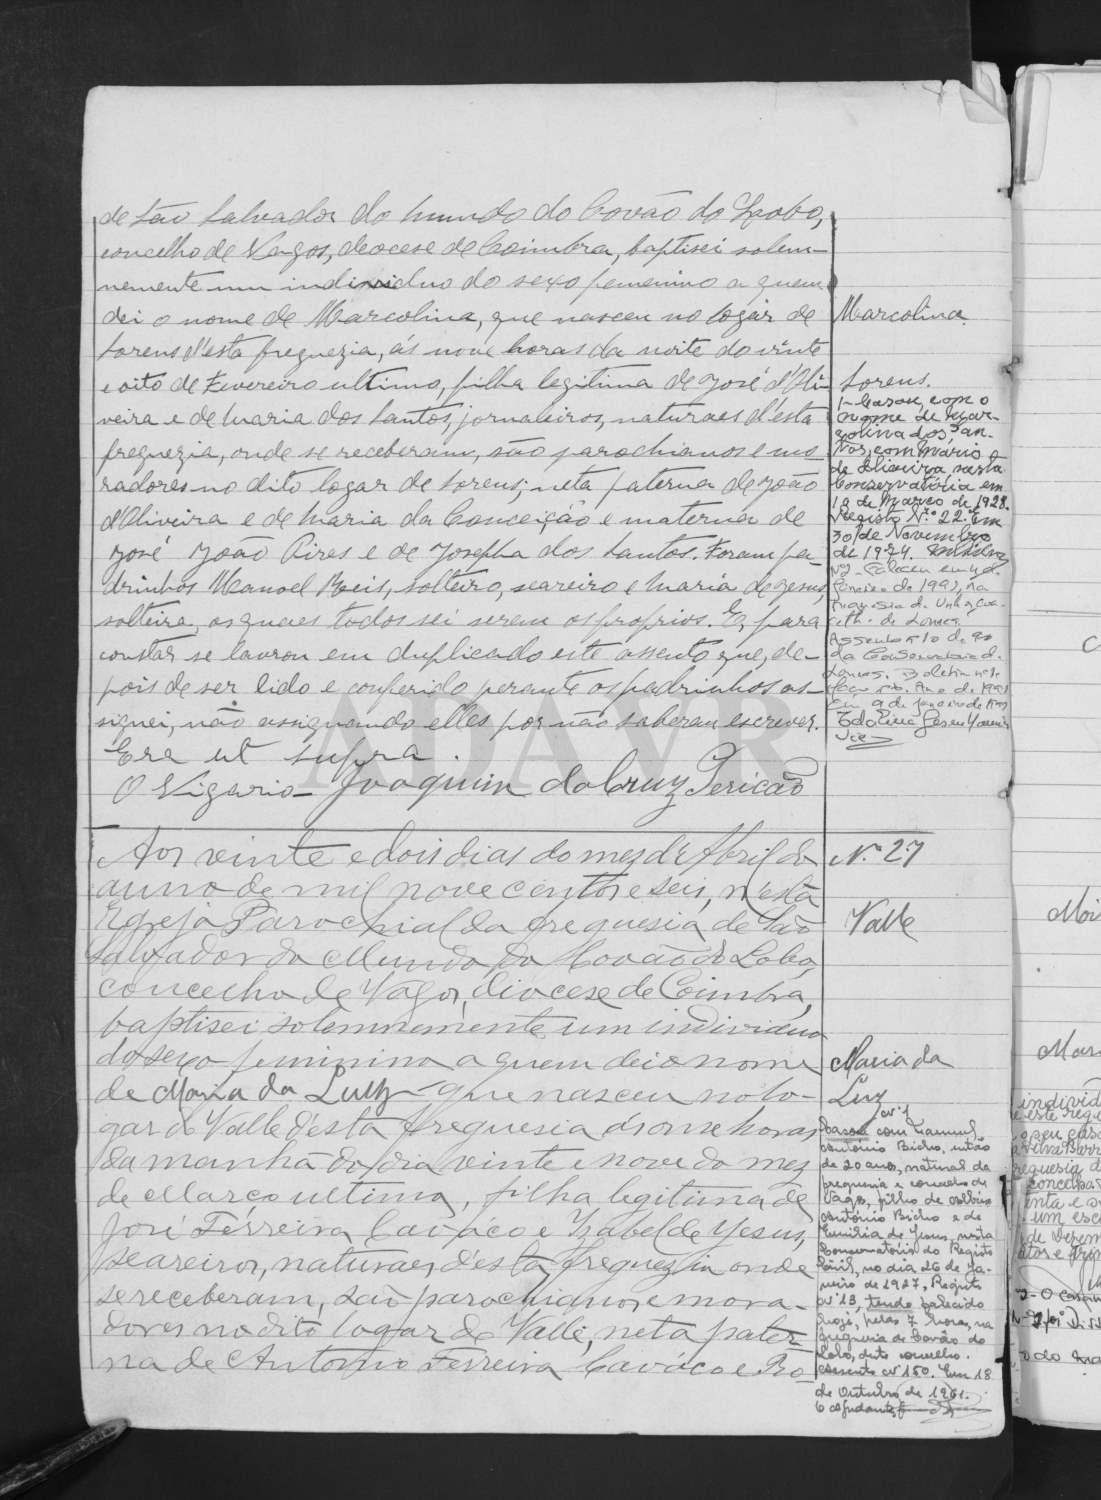 de São Salvador do Mundo do Covão do Lobo,
concelho de Vagos, deocese de Coimbra, baptisei solem-
nemente um individuo do sexo femenino a quem
dei o nome de Marcolina, que nasceu no logar de
Lorens d'esta freguezia, ás nove horas da noite do vinte
e oito de Fevereiro ultimo, filha legitima de José d'Oli-
veira e de Maria dos Santos, jornaleiros, naturaes d'esta
freguezia, onde se receberam, são parochianos e mo-
radores no dito logar de Lorens; neta paterna de João
d'Oliveira e de Maria da Conceição e materna de
José João Pires e de Josepha dos Santos. Foram pa-
drinhos Manoel Reis, solteiro, seareiro e Maria de Jesus,
solteira, os quaes todos sei serem os proprios. E, para
constar se lavrou em duplicado este assento que, de-
pois de ser lido e conferido perante os padrinhos as-
signei, não assignando elles por não saberem escrever.
Era ut supra.
O Vigario - Joaquim da Cruz Pericão
Marcolina
Lorens.
1- Casou com o
nome de Mar-
colina dos San-
tos, com Mario
de Oliveira nesta
Conservatória em
10 de Março de 1928.
Registo N.º 22. Em
30 de Novembro
de 1974.
Nº 2 - Faleceu em 4 de
Janeiro de 1991, na
freguesia de
de Loures.
Assento nº 10 de 90
da Conservatoria de
Loures. Boletim nº 1
Em 9 de Janeiro de 1991
ADAVR
Aos vinte e dois dias do mez de Abril do
anno de mil nove centos e seis, n'esta
Egreja Parochial da freguesia de São
Salvador do Mundo do Covão do Lobo,
concelho de Vagos, diocese de Coimbra,
baptisei solemnemente um individuo
do sexo feminino a quem dei o nome
de Maria da Luz - que nasceu no lo-
gar de Valle d'esta freguesia ás onze horas
da manhã do dia vinte e nove do mez
de Março ultimo, filha legitima de
José Ferreira Caváco e Izabel de Jesus,
seareiros, naturaes d'esta freguezia onde
se receberam, são parochianos e mora-
dores no dito logar de Valle, neta pater-
na de Antonio Ferreira Caváco e Ro-
N.º 27
Valle
Maria da
Luz
Nº 1
Casou com Manuel
António Bicho, então
de 20 anos, natural da
freguesia e concelho de
Vagos, filho de
António Bicho e de
Emilia de Jesus, nesta
Conservatória do Registo
Civil, no dia 26 de Ja-
neiro de 1927, Registo
Nº 13, tendo falecido
hoje, pelas 7 horas, na
freguesia de Covão do
Lobo, dito concelho.
Assento nº 150. Em 18
de Outubro de 1961.
O ajudante,